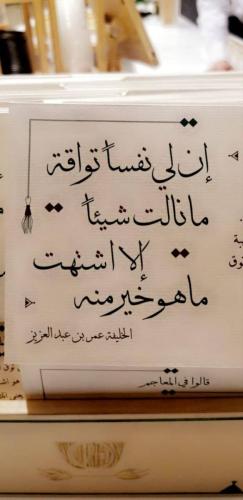 إن لي نفساً تواقة
ما نالت شيئاً
إلا اشتهت
ما هو خير منه
الخليفة عمر بن عبد العزيز
قالوا في المعاجم